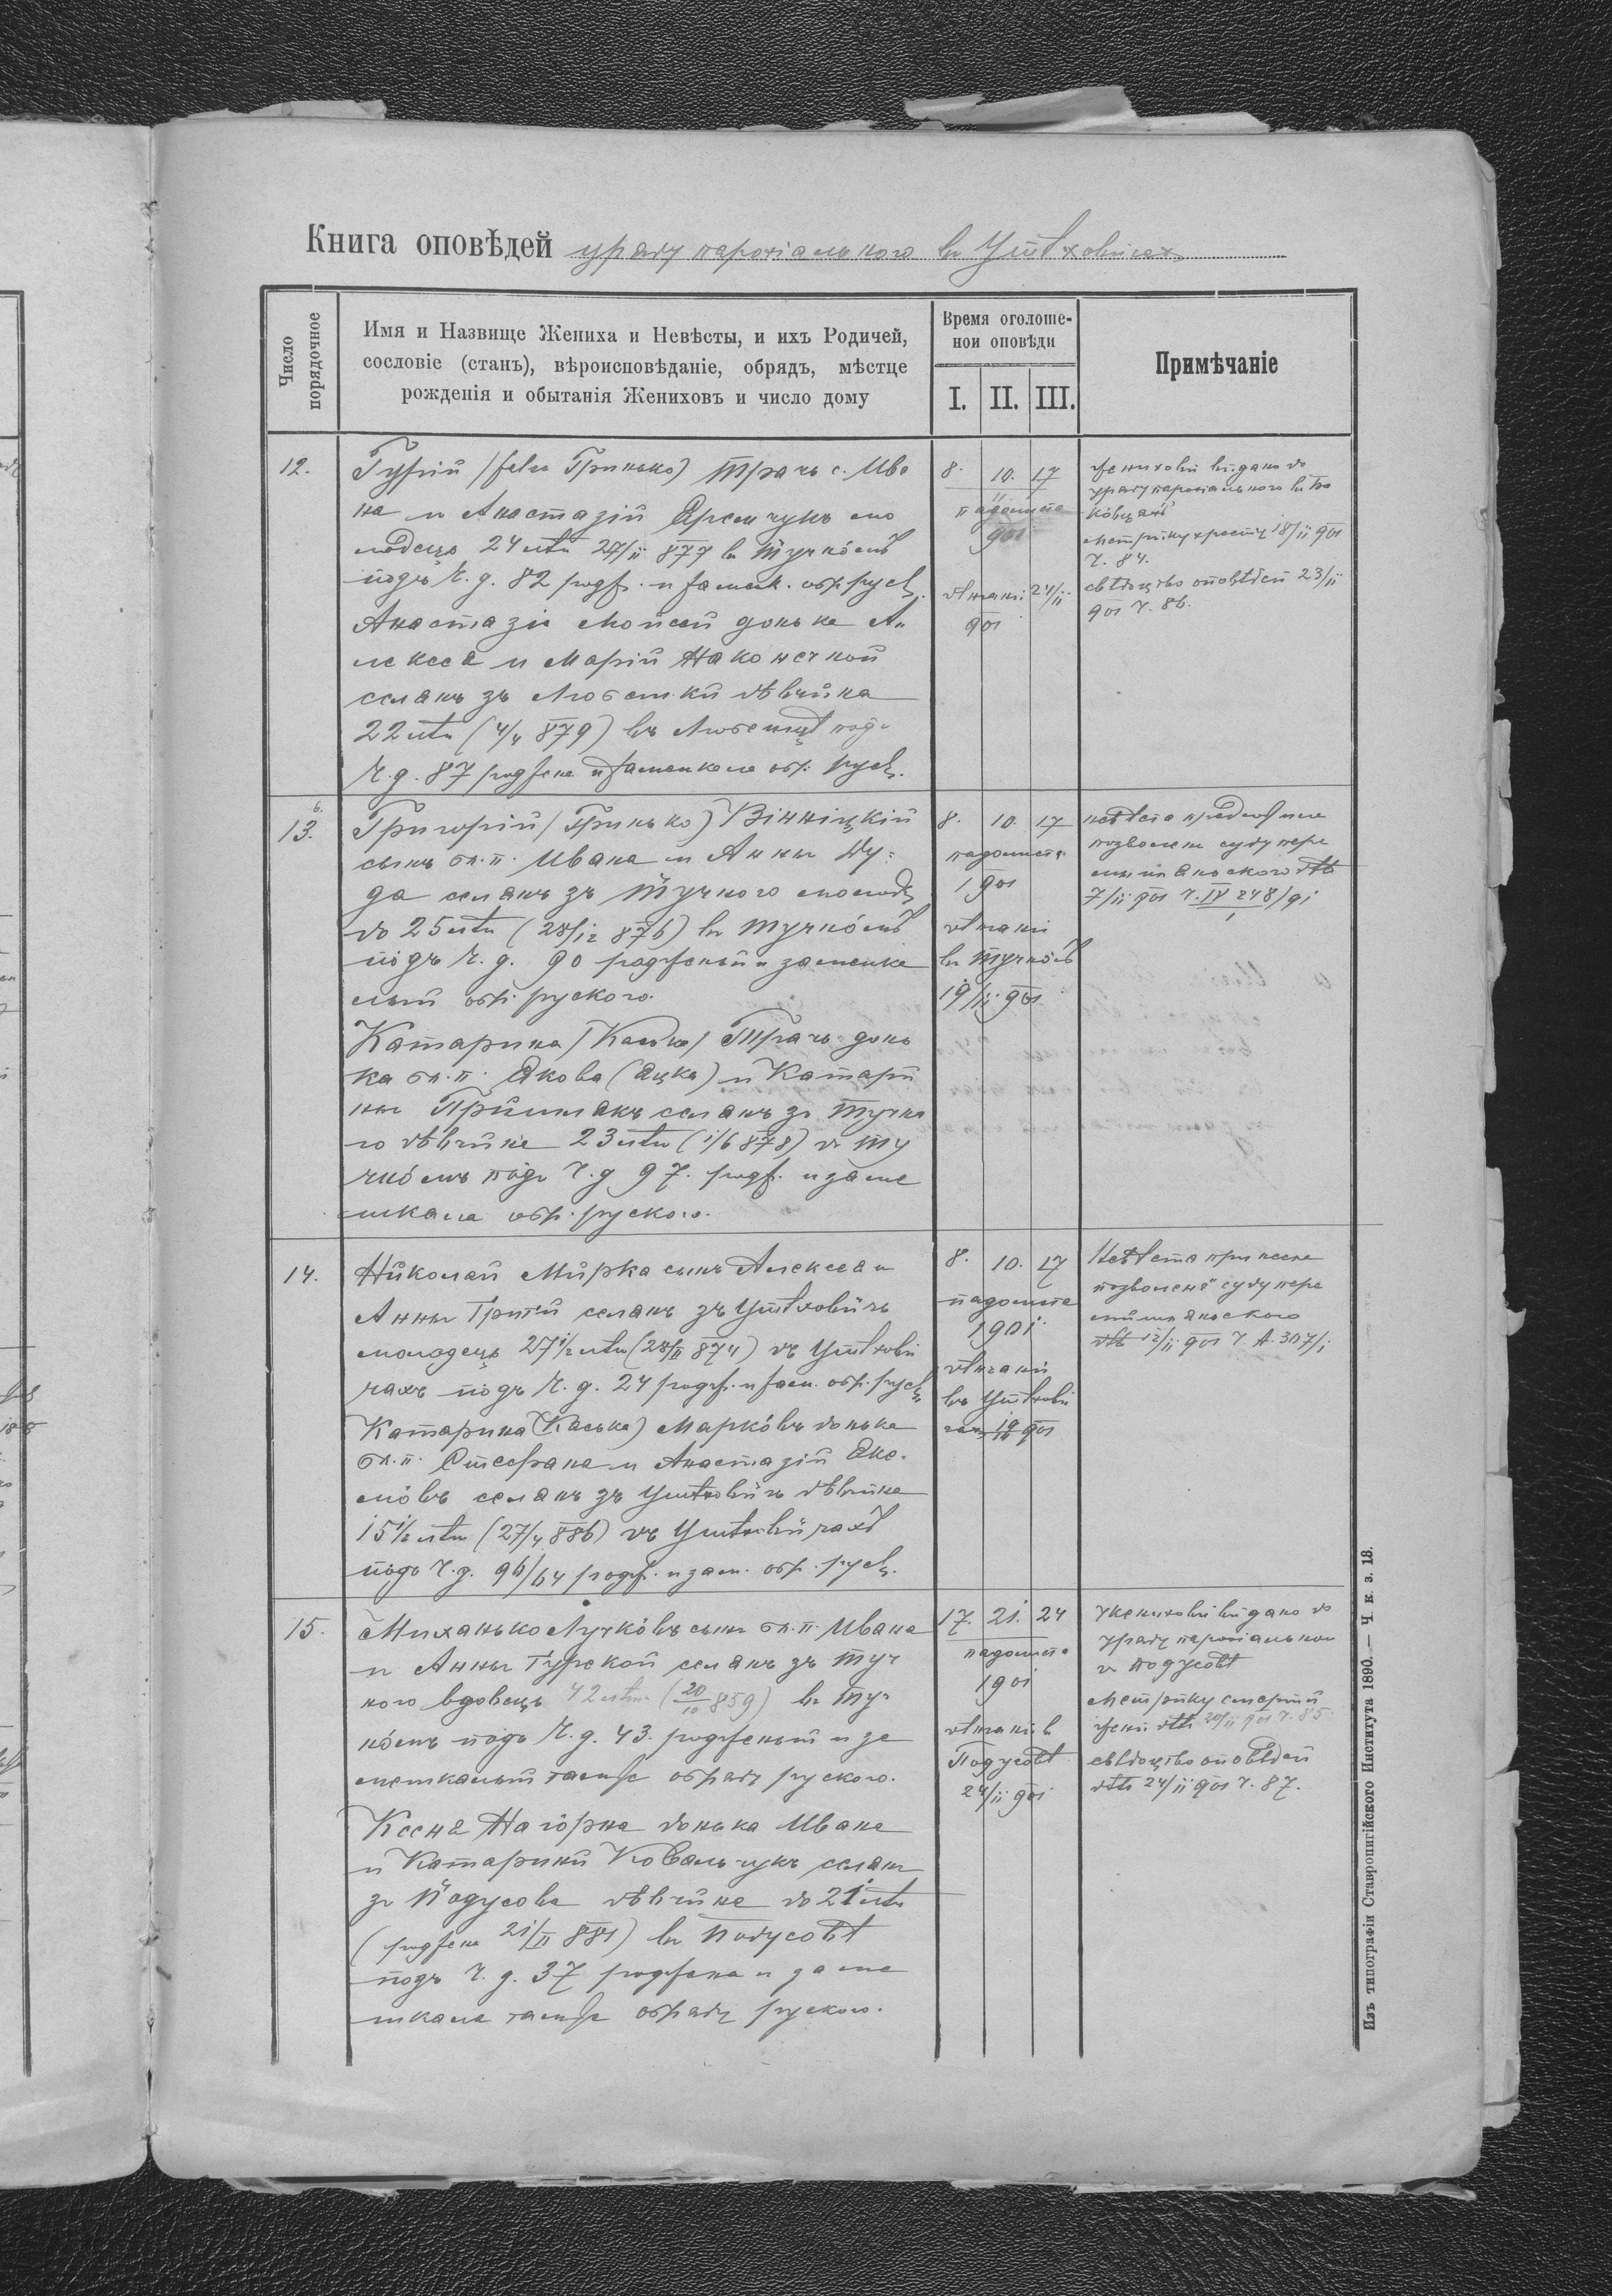 Книга оповѣдей уряду парохіального въ Ушѣховичахъ
Число порядочное
Имя и Назвище Жениха и Невѣсты, и ихъ Родичей,
сословіе (станъ), вѣроисповѣданіе, обрядъ, мѣстце
рожденія и обытанія Жениховъ и число дому
Время оголоше-
нои оповѣди
I. II. III.
Примѣчаніе
12.
Гурій (Гринько) Трачъ с. Ива
на и Анастазіи Яремчукъ мо
лодецъ 24 лѣтъ 27/II 877 въ Тучкômъ
подъ ч. д. 82 родж. и замешк. обр. руск.
Анастазіа Мойсей донька А
лексея и Маріи Наконечной
селянъ зъ дѣвчина
22 лѣтъ (4/4 879) въ подъ
ч. д. 87 роджена и замешкала обр. руск.
8. 10. 17
падолиста
901
вѣнчані 24/ii
901
Женихови видано до
уряду парохіального въ
Метрику хресту 18/ii 901
ч. 84.
свѣдоцтво оповѣдей 23/ii
901 ч. 86.
13.
Григорій (Гринько) Вінніцкій
сынъ бл. п. Ивана и Анны Ду-
да селянъ зъ Тучкого молод
до 25 лѣтъ (28/12 876) въ Тучкômъ
подъ ч. д. 90 родженый и замешка
лый обр. руского.
Катарина (Каська) Трачъ донь
ка бл. п. Якова (Яцка) и Катари
ны Приймакъ селянъ зъ Тучко
го дѣвчина 23 лѣтъ (1/6 878) въ Ту
чкômъ подъ ч. д. 97. родж. и заме
шкала обр. руского.
8. 10. 17
падолиста
1901
вѣнчані
въ Тучкômъ
19/ii 901
невѣста предложила
позволене суду пере
мышляньского
7/ii 901 ч. IV 248/91
14.
Николай Мирка сынъ Алексея и
Анны селянъ зъ Ушѣховичъ
молодецъ 27 1/2 лѣтъ (28/II 874) въ Ушѣхови
чахъ подъ ч. д. 24 родж. и зам. обр. руск.
Катарина (Каська) Маркôвъ донька
бл. п. Стефана и Анастазіи Яки-
мôвъ селянъ зъ Ушѣховичъ дѣвчина
15 1/2 лѣтъ (27/4 886) въ Ушѣховичахъ
подъ ч. д. 96/64 родж. и зам. обр. руск.
8. 10. 17
падолиста
1901
вѣнчані
въ Ушѣхови
чахъ 19/II 901
Невѣста принесла
позволене суду пере
мышляньского
12/ii 901 ч. A 307/1
15.
Миханько Лучкôвъ сынъ бл. п. Ивана
и Анны Гурской селянъ зъ Туч
кого вдовецъ 42 лѣтъ (20/10 859) въ Туч
кôмъ подъ ч. д. 43. родженый и за
мешкалый тамже обряду руского.
Ксеня Нагôрна донька Ивана
и Катарини Ковальчукъ селянъ
зъ Подусова дѣвчина до 21 лѣтъ
(роджена 21/II 881) въ Подусовѣ
подъ ч. д. 37 роджена и заме
шкала тамже обряду руского.
17. 21. 24
падолиста
1901
вѣнчані в
Подусовѣ
24/ii 901
Женихови видано до
уряду парохіального
въ Подусовѣ
Метрику смерти
жени 20/ii 901 ч. 85
свѣдоцтво оповѣдей
24/ii 901 ч. 87.
Изъ типографіи Ставропигійского Института 1890. — Ч. к. з. 18.